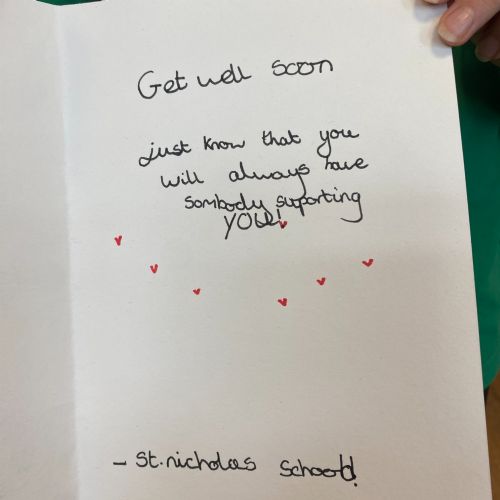 Get well soon
just know that you
will always have
sombody suporting
YOU!
- St.nicholas School!